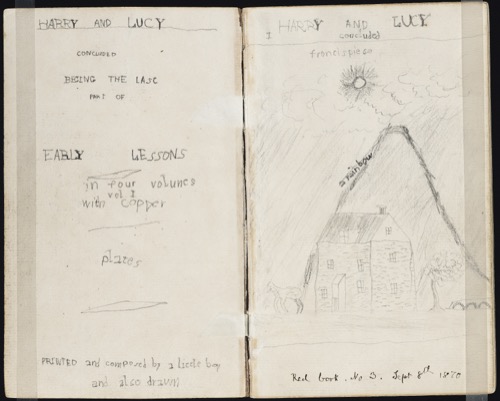 HARRY AND LUCY
CONCLUDED
BEING THE LAST
PART OF
EARLY LESSONS
in four volumes
vol I
with copper
plates
PRINTED and composed by a little boy
and also drawn
HARRY AND LUCY
concluded
frontispiece
a rainbow
Red book. No 3. Sept 8th